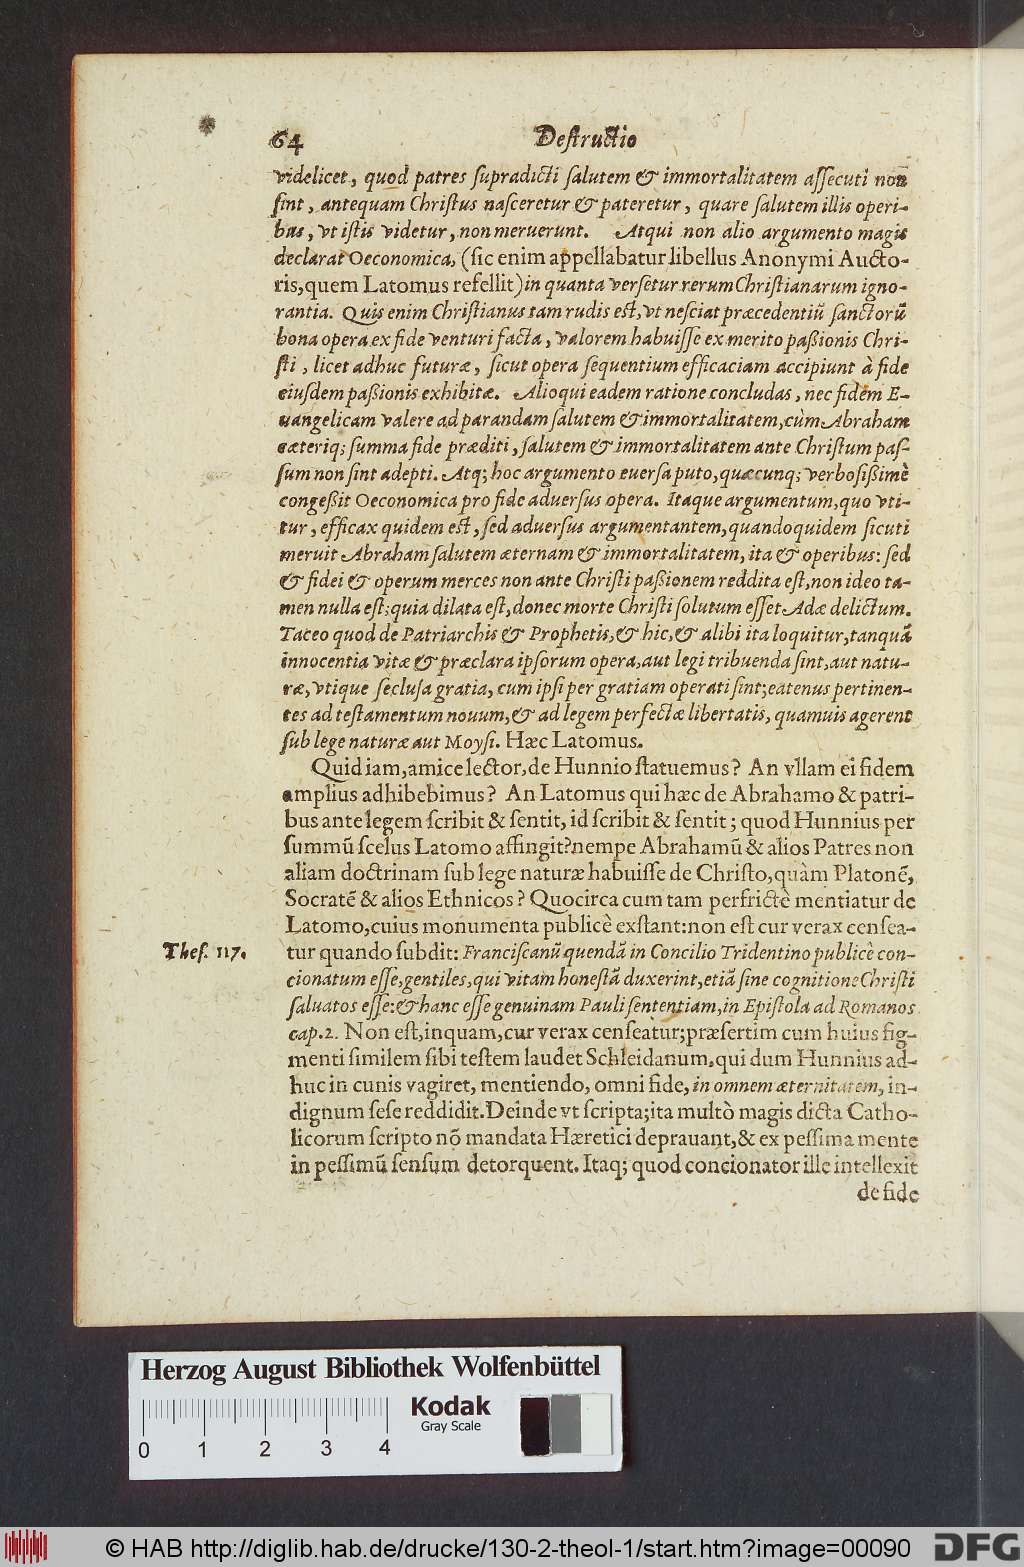 64 Destructio
videlicet, quod patres supradicti salutem & immortalitatem assecuti non
sint, antequam Christus nasceretur & pateretur, quare salutem illis operi-
bus, vt istis videtur, non meruerunt. Atqui non alio argumento magis
declarat Oeconomica, (sic enim appellabatur libellus Anonymi Aucto-
ris, quem Latomus refellit) in quanta versetur rerum Christianarum igno-
rantia. Quis enim Christianus tam rudis est, vt nesciat præcedentiũ sanctorũ
bona opera ex fide venturi facta, valorem habuisse ex merito passionis Chri-
sti, licet adhuc futuræ, sicut opera sequentium efficaciam accipiunt à fide
eiusdem passionis exhibitæ. Alioqui eadem ratione concludas, nec fidem E-
uangelicam valere ad parandam salutem & immortalitatem, cùm Abraham
cæteriq; summa fide præditi, salutem & immortalitatem ante Christum pas-
sum non sint adepti. Atq; hoc argumento euersa puto, quæcunq; verbosissimè
congessit Oeconomica pro fide aduersus opera. Itaque argumentum, quo vti-
tur, efficax quidem est, sed aduersus argumentantem, quandoquidem sicuti
meruit Abraham salutem æternam & immortalitatem, ita & operibus: sed
& fidei & operum merces non ante Christi passionem reddita est, non ideo ta-
men nulla est; quia dilata est, donec morte Christi solutum esset Adæ delictum.
Taceo quod de Patriarchis & Prophetis, & hic, & alibi ita loquitur, tanquã
innocentia vitæ & præclara ipsorum opera, aut legi tribuenda sint, aut natu-
ræ, vtique seclusa gratia, cum ipsi per gratiam operati sint; eatenus pertinen-
tes ad testamentum nouum, & ad legem perfectæ libertatis, quamuis agerent
sub lege naturæ aut Moysi. Hæc Latomus.
Quid iam, amice lector, de Hunnio statuemus? An vllam ei fidem
amplius adhibebimus? An Latomus qui hæc de Abrahamo & patri-
bus ante legem scribit & sentit, id scribit & sentit; quod Hunnius per
summũ scelus Latomo affingit? nempe Abrahamũ & alios Patres non
aliam doctrinam sub lege naturæ habuisse de Christo, quàm Platonẽ,
Socratẽ & alios Ethnicos? Quocirca cum tam perfrictè mentiatur de
Latomo, cuius monumenta publicè exstant: non est cur verax censea-
Thes. 117. tur quando subdit: Franciscanũ quendã in Concilio Tridentino publicè con-
cionatum esse, gentiles, qui vitam honestã duxerint, etiã sine cognitione Christi
saluatos esse: & hanc esse genuinam Pauli sententiam, in Epistola ad Romanos
cap. 2. Non est, inquam, cur verax censeatur; præsertim cum huius fig-
menti similem sibi testem laudet Schleidanum, qui dum Hunnius ad-
huc in cunis vagiret, mentiendo, omni fide, in omnem æternitatem, in-
dignum sese reddidit. Deinde vt scripta; ita multò magis dicta Catho-
licorum scripto nõ mandata Hæretici deprauant, & ex pessima mente
in pessimũ sensum detorquent. Itaq; quod concionator ille intellexit
de fide
Herzog August Bibliothek Wolfenbüttel
0 1 2 3 4
Kodak
Gray Scale
© HAB http://diglib.hab.de/drucke/130-2-theol-1/start.htm?image=00090
DFG